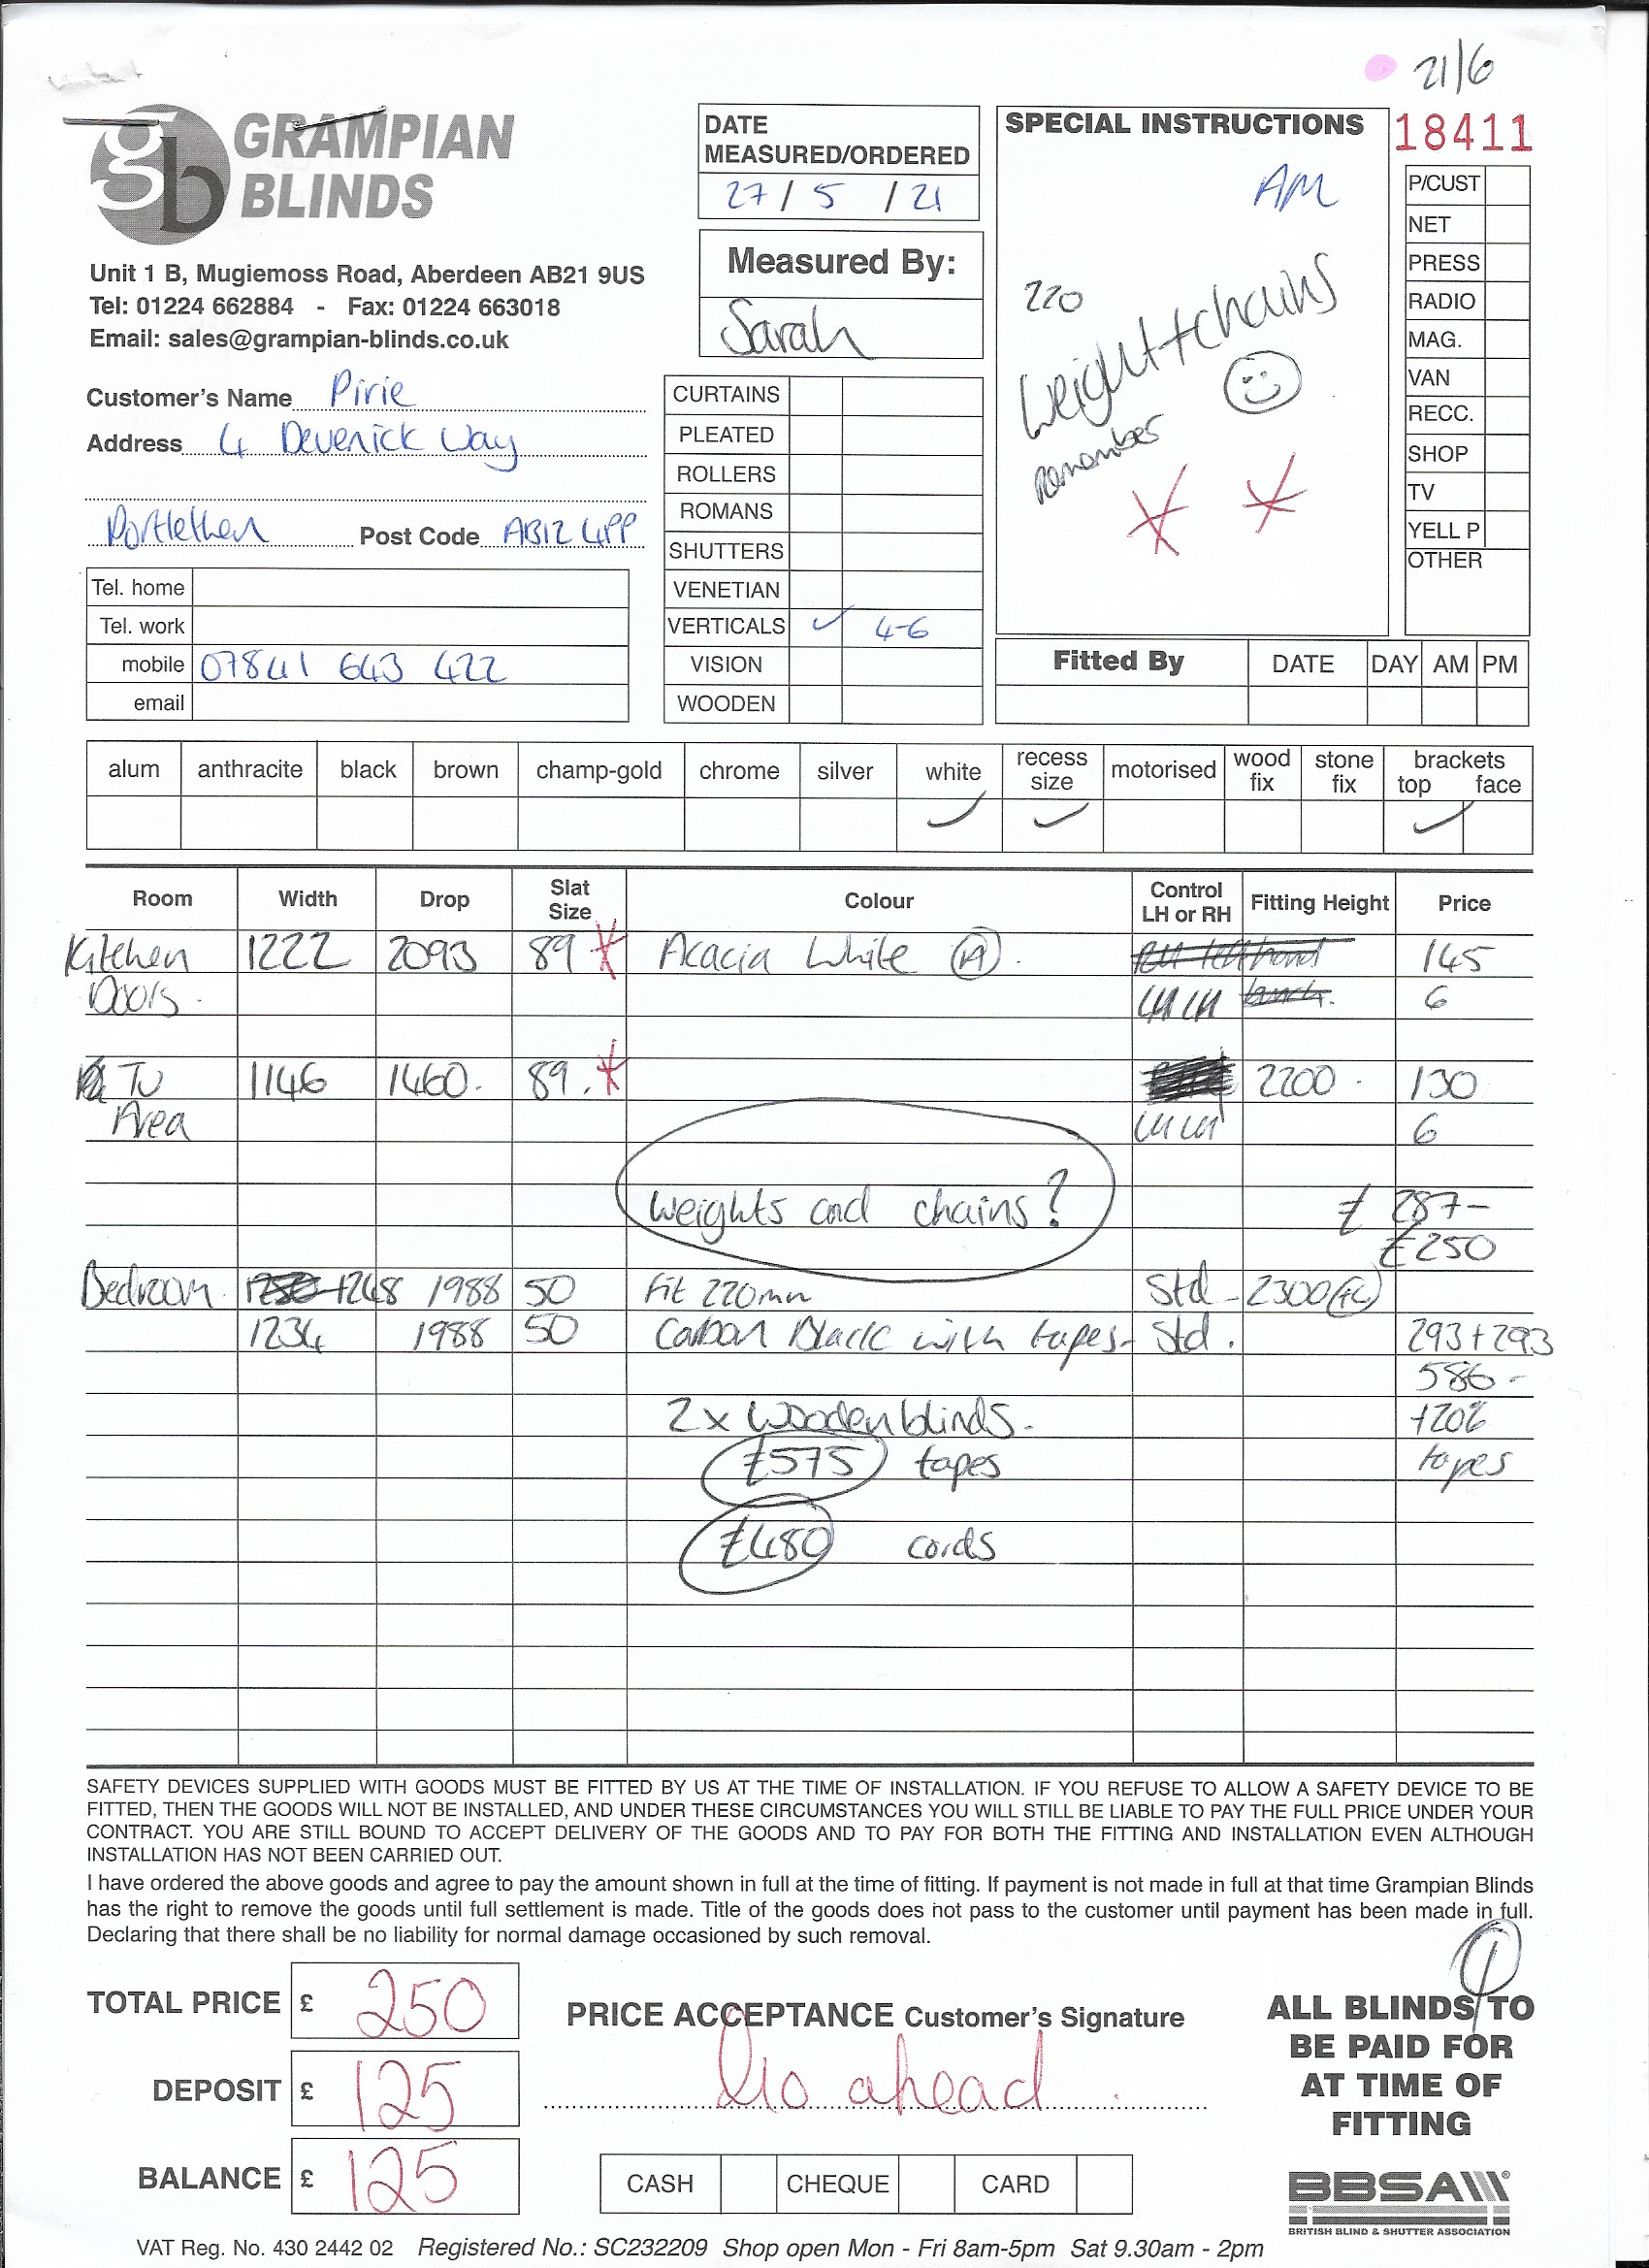 21/6
GRAMPIAN
BLINDS
gb
Unit 1 B, Mugiemoss Road, Aberdeen AB21 9US
Tel: 01224 662884 - Fax: 01224 663018
Email: sales@grampian-blinds.co.uk
DATE
MEASURED/ORDERED
27 / 5 / 21
Measured By:
Sarah
SPECIAL INSTRUCTIONS
AM
220
Weight + chains
remember
18411
P/CUST
NET
PRESS
RADIO
MAG.
VAN
RECC.
SHOP
TV
YELL P
OTHER
Customer's Name Pirie
Address 4 Devenick Way
Portlethen Post Code AB12 4PP
Tel. home
Tel. work
mobile 07841 643 422
email
CURTAINS
PLEATED
ROLLERS
ROMANS
SHUTTERS
VENETIAN
VERTICALS ✓ 4-6
VISION
WOODEN
Fitted By DATE DAY AM PM
alum anthracite black brown champ-gold chrome silver white recess size motorised wood fix stone fix brackets top face
✓ ✓ ✓
Room Width Drop Slat Size Colour Control LH or RH Fitting Height Price
Kitchen 1222 2093 89 * Acacia White (A). 145
Doors. LH LH 6
TV 1146 1460. 89. * 2200. 130
Area LH LH 6
weights and chains? £ 287-
£250
Bedroom 1268 1988 50 Fit 220mm Std - 2300
1234 1988 50 Carbon Black with tapes - Std. 293+293
586-
2 x Wooden blinds. +20%
£575 tapes tapes
£480 cords
SAFETY DEVICES SUPPLIED WITH GOODS MUST BE FITTED BY US AT THE TIME OF INSTALLATION. IF YOU REFUSE TO ALLOW A SAFETY DEVICE TO BE
FITTED, THEN THE GOODS WILL NOT BE INSTALLED, AND UNDER THESE CIRCUMSTANCES YOU WILL STILL BE LIABLE TO PAY THE FULL PRICE UNDER YOUR
CONTRACT. YOU ARE STILL BOUND TO ACCEPT DELIVERY OF THE GOODS AND TO PAY FOR BOTH THE FITTING AND INSTALLATION EVEN ALTHOUGH
INSTALLATION HAS NOT BEEN CARRIED OUT.
I have ordered the above goods and agree to pay the amount shown in full at the time of fitting. If payment is not made in full at that time Grampian Blinds
has the right to remove the goods until full settlement is made. Title of the goods does not pass to the customer until payment has been made in full.
Declaring that there shall be no liability for normal damage occasioned by such removal.
TOTAL PRICE £ 250
DEPOSIT £ 125
BALANCE £ 125
PRICE ACCEPTANCE Customer's Signature
Go ahead
CASH CHEQUE CARD
ALL BLINDS TO
BE PAID FOR
AT TIME OF
FITTING
BBSA
BRITISH BLIND & SHUTTER ASSOCIATION
VAT Reg. No. 430 2442 02 Registered No.: SC232209 Shop open Mon - Fri 8am-5pm Sat 9.30am - 2pm